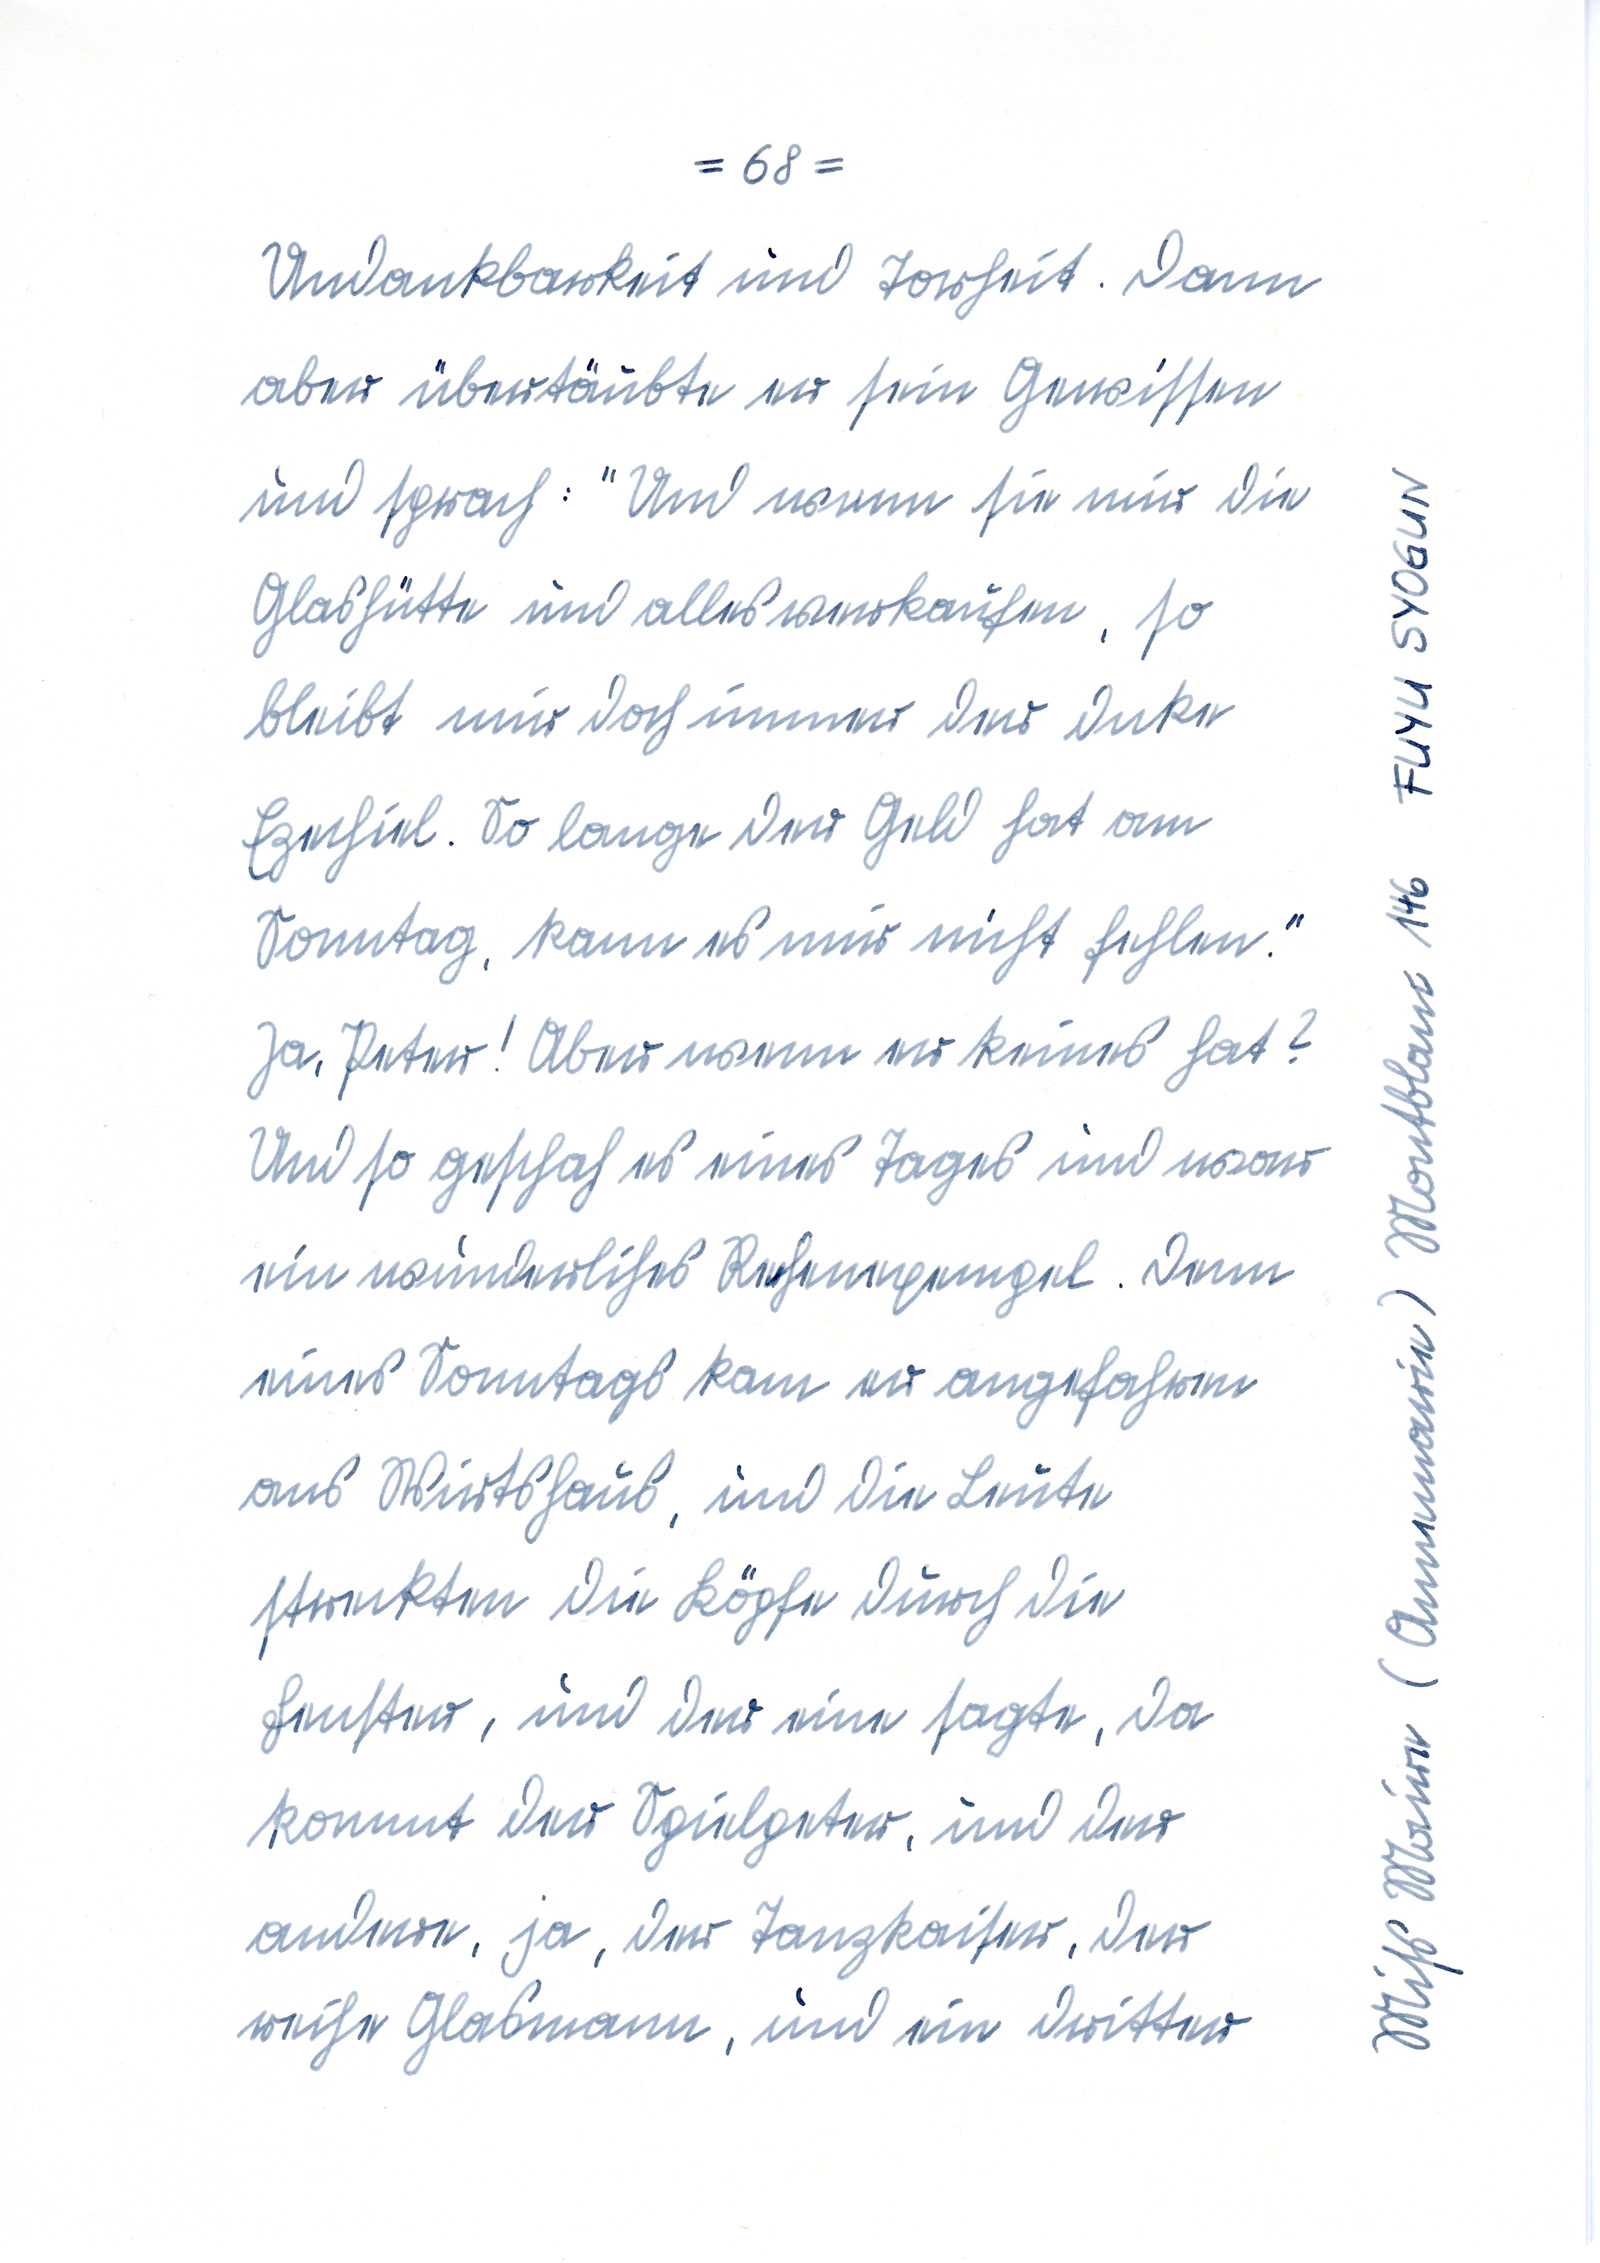 = 68 =
Undankbarkeit und Torheit. Dann
aber übertäubte er sein Gewissen
und sprach: "Und wenn sie mir die
Glashütte und alles verkaufen, so
bleibt mir doch immer der dicke
Ezechiel. So lange der Geld hat am
Sonntag, kann es mir nicht fehlen."
Ja, Peter! Aber wenn er keines hat?
Und so geschah es eines Tages und war
ein wunderliches Rechenexempel. Denn
eines Sonntags kam er angefahren
ans Wirtshaus, und die Leute
streckten die Köpfe durch die
Fenster, und der eine sagte, da
kommt der Spielpeter, und der
andere, ja, der Tanzkaiser, der
reiche Glasmann, und ein dritter
(Annemarie) Montblanc 146 FUYU SYOGUN